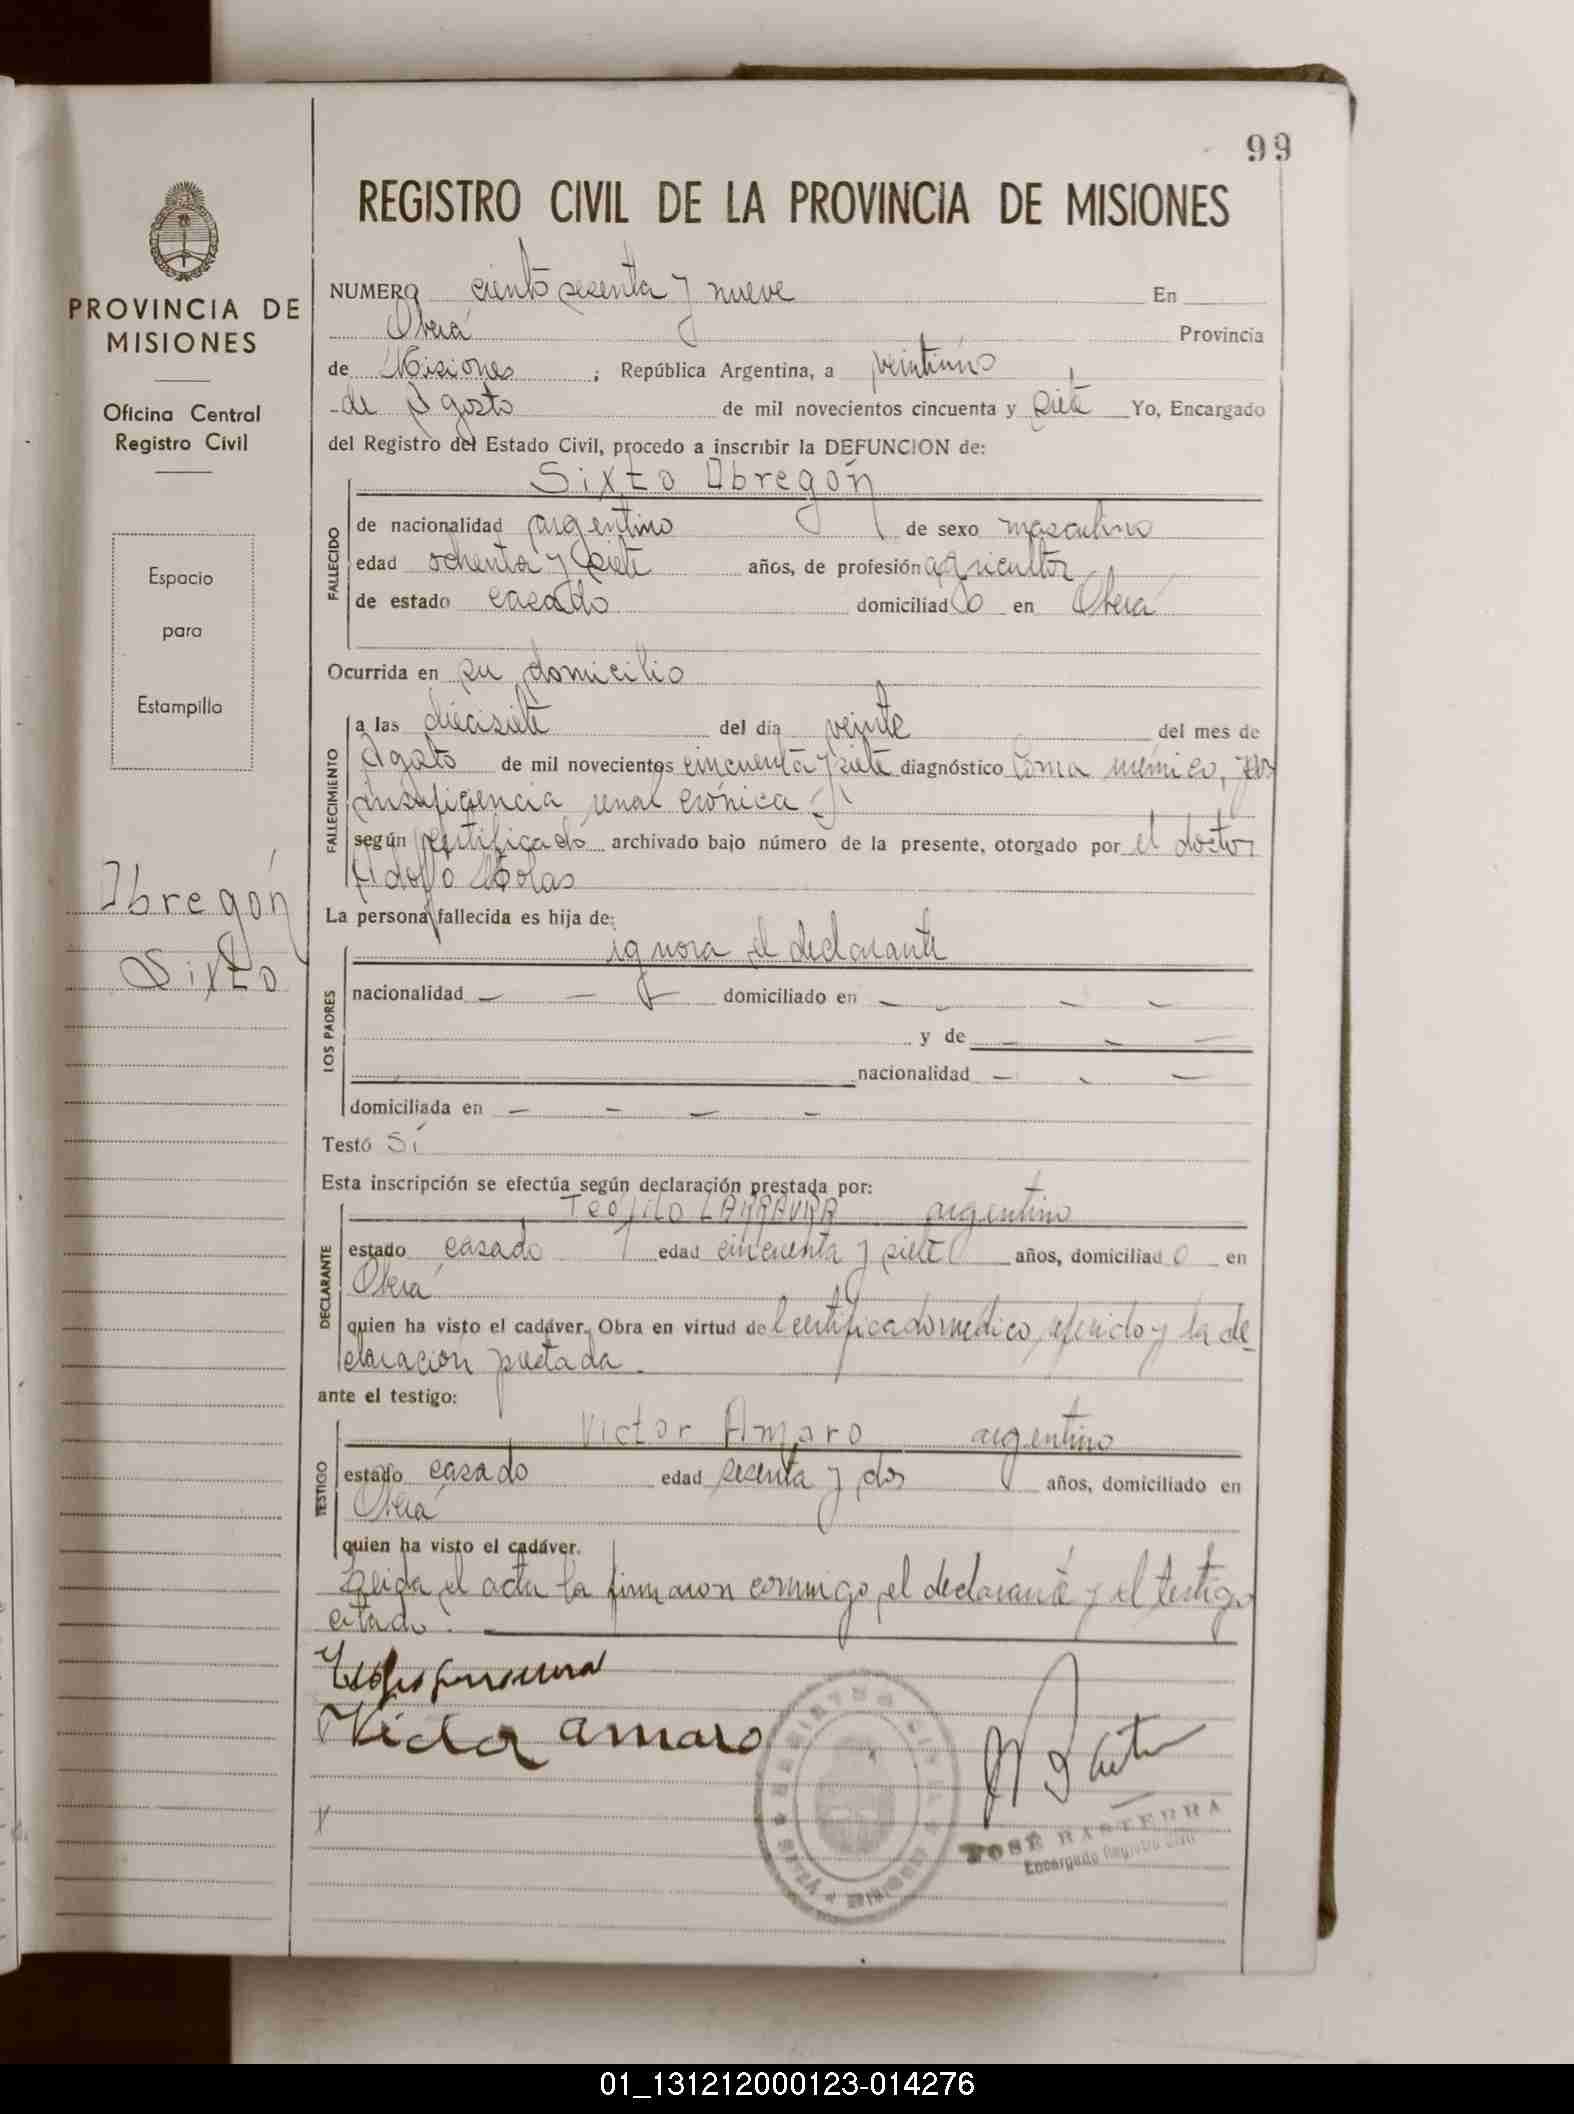 99
PROVINCIA DE
MISIONES
Oficina Central
Registro Civil
Espacio
para
Estampilla
Obregón
Sixto
REGISTRO CIVIL DE LA PROVINCIA DE MISIONES
NUMERO ciento sesenta y nueve En
Oberá Provincia
de Misiones ; República Argentina, a veintiuno
de Agosto de mil novecientos cincuenta y siete Yo, Encargado
del Registro del Estado Civil, procedo a inscribir la DEFUNCION de:
Sixto Obregón
FALLECIDO
de nacionalidad argentino de sexo masculino
edad ochenta y siete años, de profesión agricultor
de estado casado domiciliado en Oberá
Ocurrida en su domicilio
FALLECIMIENTO
a las diecisiete del día veinte del mes de
Agosto de mil novecientos cincuenta y siete diagnóstico Coma urémico, por
insuficiencia renal crónica
según certificado archivado bajo número de la presente, otorgado por el doctor
Adolfo
La persona fallecida es hija de:
ignora el declarante
LOS PADRES
nacionalidad — — — domiciliado en — — — —
y de — — —
nacionalidad — — —
domiciliada en — — — —
Testó Sí
Esta inscripción se efectúa según declaración prestada por:
Teófilo argentino
DECLARANTE
estado casado edad cincuenta y siete años, domiciliado en
Oberá
quien ha visto el cadáver. Obra en virtud del certificado médico, referido y la de-
claración prestada.
ante el testigo:
Victor Amaro argentino
TESTIGO
estado casado edad sesenta y dos años, domiciliado en
Oberá
quien ha visto el cadáver.
Leida el acta la firmaron conmigo el declarante y el testigo
citado.
Victor amaro
JOSÉ BASTERRA
Encargado Registro Civil
01_131212000123-014276